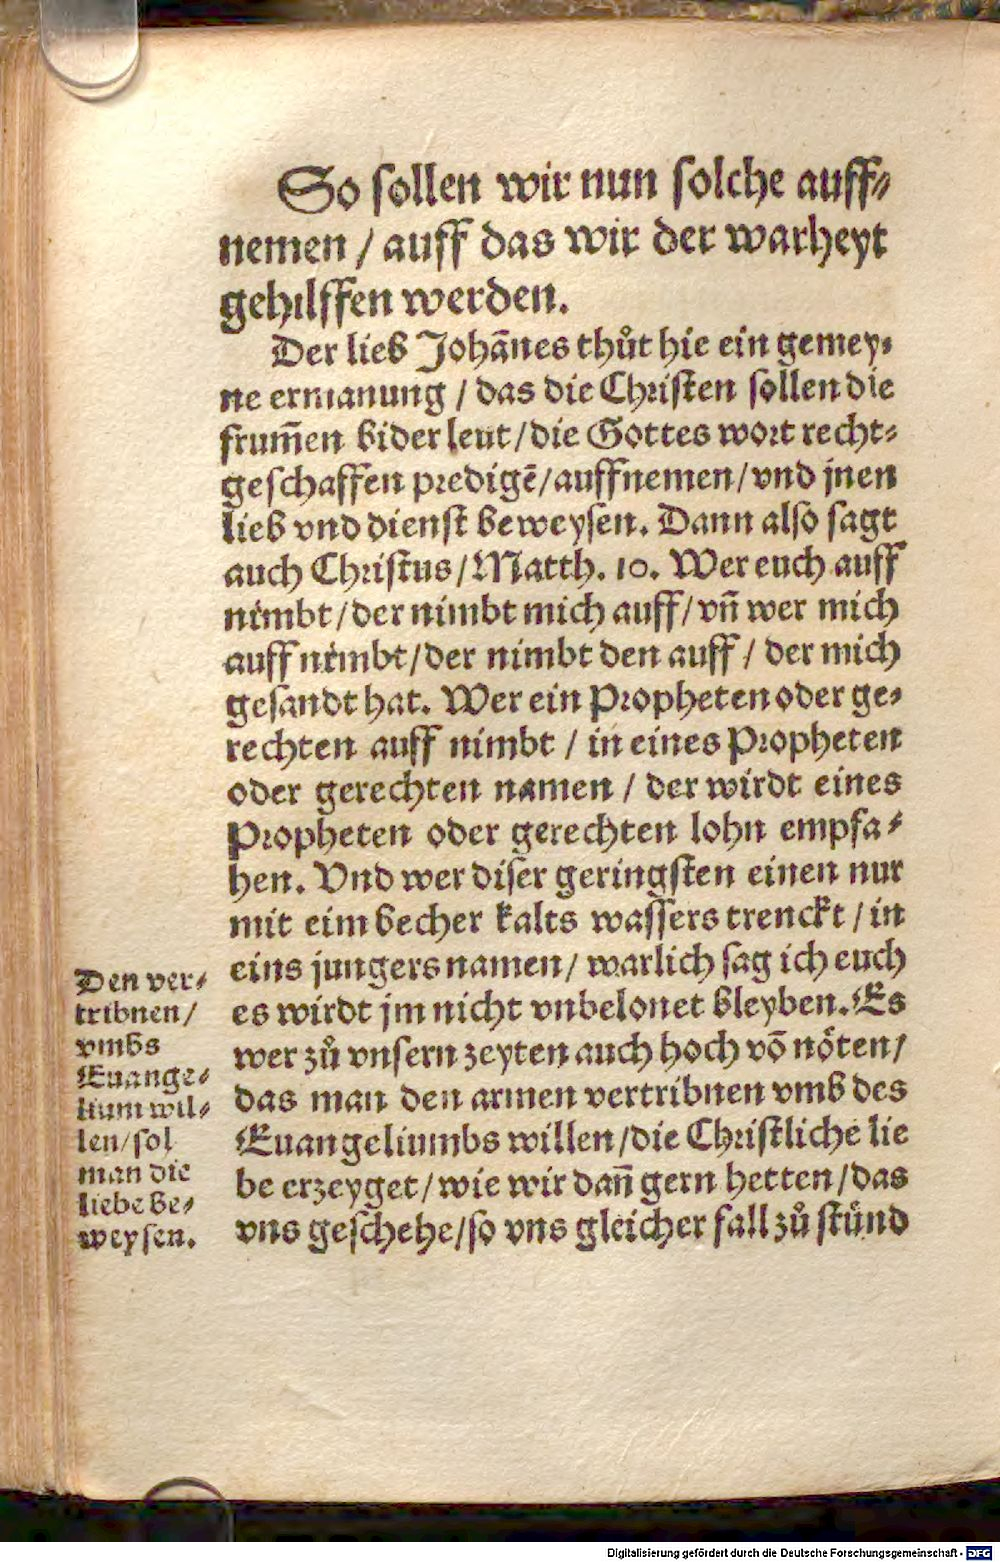 So sollen wir nun solche auff⸗
nemen / auff das wir der warheyt
gehilffen werden.
Der lieb Johãnes thůt hie ein gemey⸗
ne ermanung / das die Christen sollen die
frum̃en biderleut / die Gottes wort recht⸗
geschaffen predigẽ / auffnemen / vnd jnen
lieb vnd dienst beweysen. Dann also sagt
auch Christus / Matth. 10. Wer euch auff
nimbt / der nimbt mich auff / vñ wer mich
auff nimbt / der nimbt den auff / der mich
gesandt hat. Wer ein Propheten oder ge⸗
rechten auff nimbt / in eines Propheten
oder gerechten namen / der wirdt eines
Propheten oder gerechten lohn empfa⸗
hen. Vnd wer diser geringsten einen nur
mit eim becher kalts wassers trenckt / in
eins jungers namen / warlich sag ich euch
es wirdt jm nicht vnbelonet bleyben. Es
wer zů vnsern zeyten auch hoch võ nöten /
das man den armen vertribnen vmb des
Euangeliumbs willen / die Christliche lie
be erzeyget / wie wir dañ gern hetten / das
vns geschehe / so vns gleicher fall zů stůnd
Den ver⸗
tribnen /
vmbs
Euange⸗
lium wil⸗
len / sol
man die
liebe be⸗
weysen.
Digitalisierung gefördert durch die Deutsche Forschungsgemeinschaft - DFG